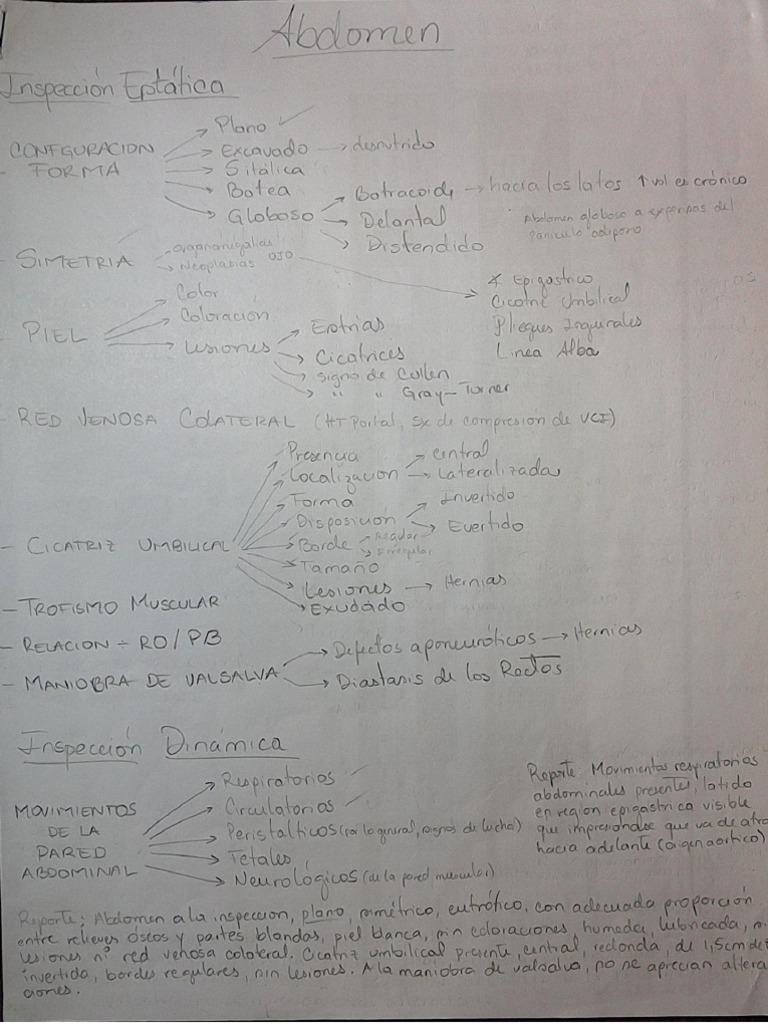 Abdomen
Inspección Estática
- CONFIGURACION
FORMA
Plano ✓
Excavado → desnutrido
Sifálica
Botea
Globoso
Batracoide → hacia los lados ↑ vol es crónico
Delantal
Distendido
Abdomen globoso a expensas del
paniculo adiposo
- SIMETRIA
Organomegalias
Neoplasias OJO
Epigastrico
Cicatriz Umbilical
Pliegues Inguinales
Linea Alba
- PIEL
Color
Coloración
Lesiones
Estrias
Cicatrices
signo de Cullen
" " Gray-Turner
- RED VENOSA COLATERAL (HT Portal, Sx de compresion de VCI)
- CICATRIZ UMBILICAL
Presencia
Localización
central
Lateralizada
Forma
Disposicion
Invertido
Evertido
Borde
Regular
Irregular
Tamaño
Lesiones → Hernias
Exudado
- TROFISMO MUSCULAR
- RELACION ÷ RO/PB
- MANIOBRA DE VALSALVA
Defectos aponeuróticos → Hernias
Diastasis de los Rectos
Inspección Dinámica
MOVIMIENTOS
DE LA
PARED
ABDOMINAL
Respiratorios
Circulatorios
Peristalticos (por lo general, signos de lucha)
Fetales
Neurológicos (de la pared muscular)
Reporte: Movimientos respiratorios
abdominales presentes, latido
en region epigastrica visible
que impresiona que va de atra
hacia adelante (origen aortico)
Reporte: Abdomen a la inspeccion, plano, simétrico, eutrófico, con adecuada proporción
entre relieves óseos y partes blandas, piel blanca, sin coloraciones, humeda, lubricada, ni
lesiones ni red venosa colateral. Cicatriz umbilical presente, central, redonda, de 1,5cm de
invertida, bordes regulares, sin lesiones. A la maniobra de valsalva, no se aprecian altera
ciones.